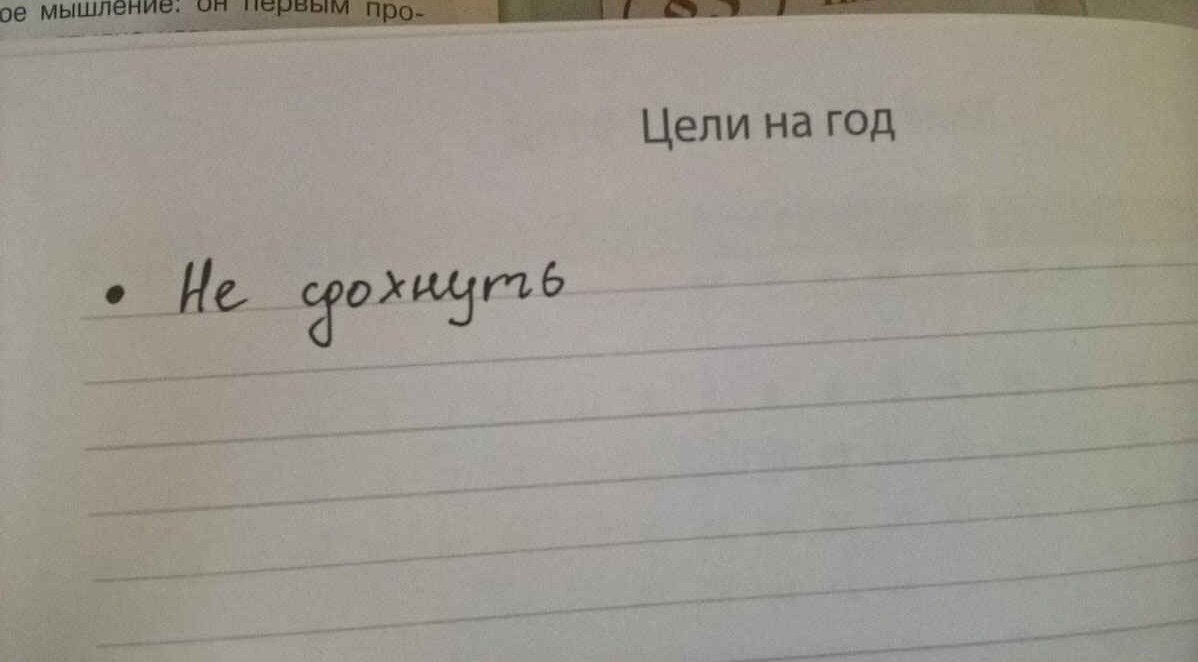 ое мышление: он первым про-
Цели на год
• Не сдохнуть